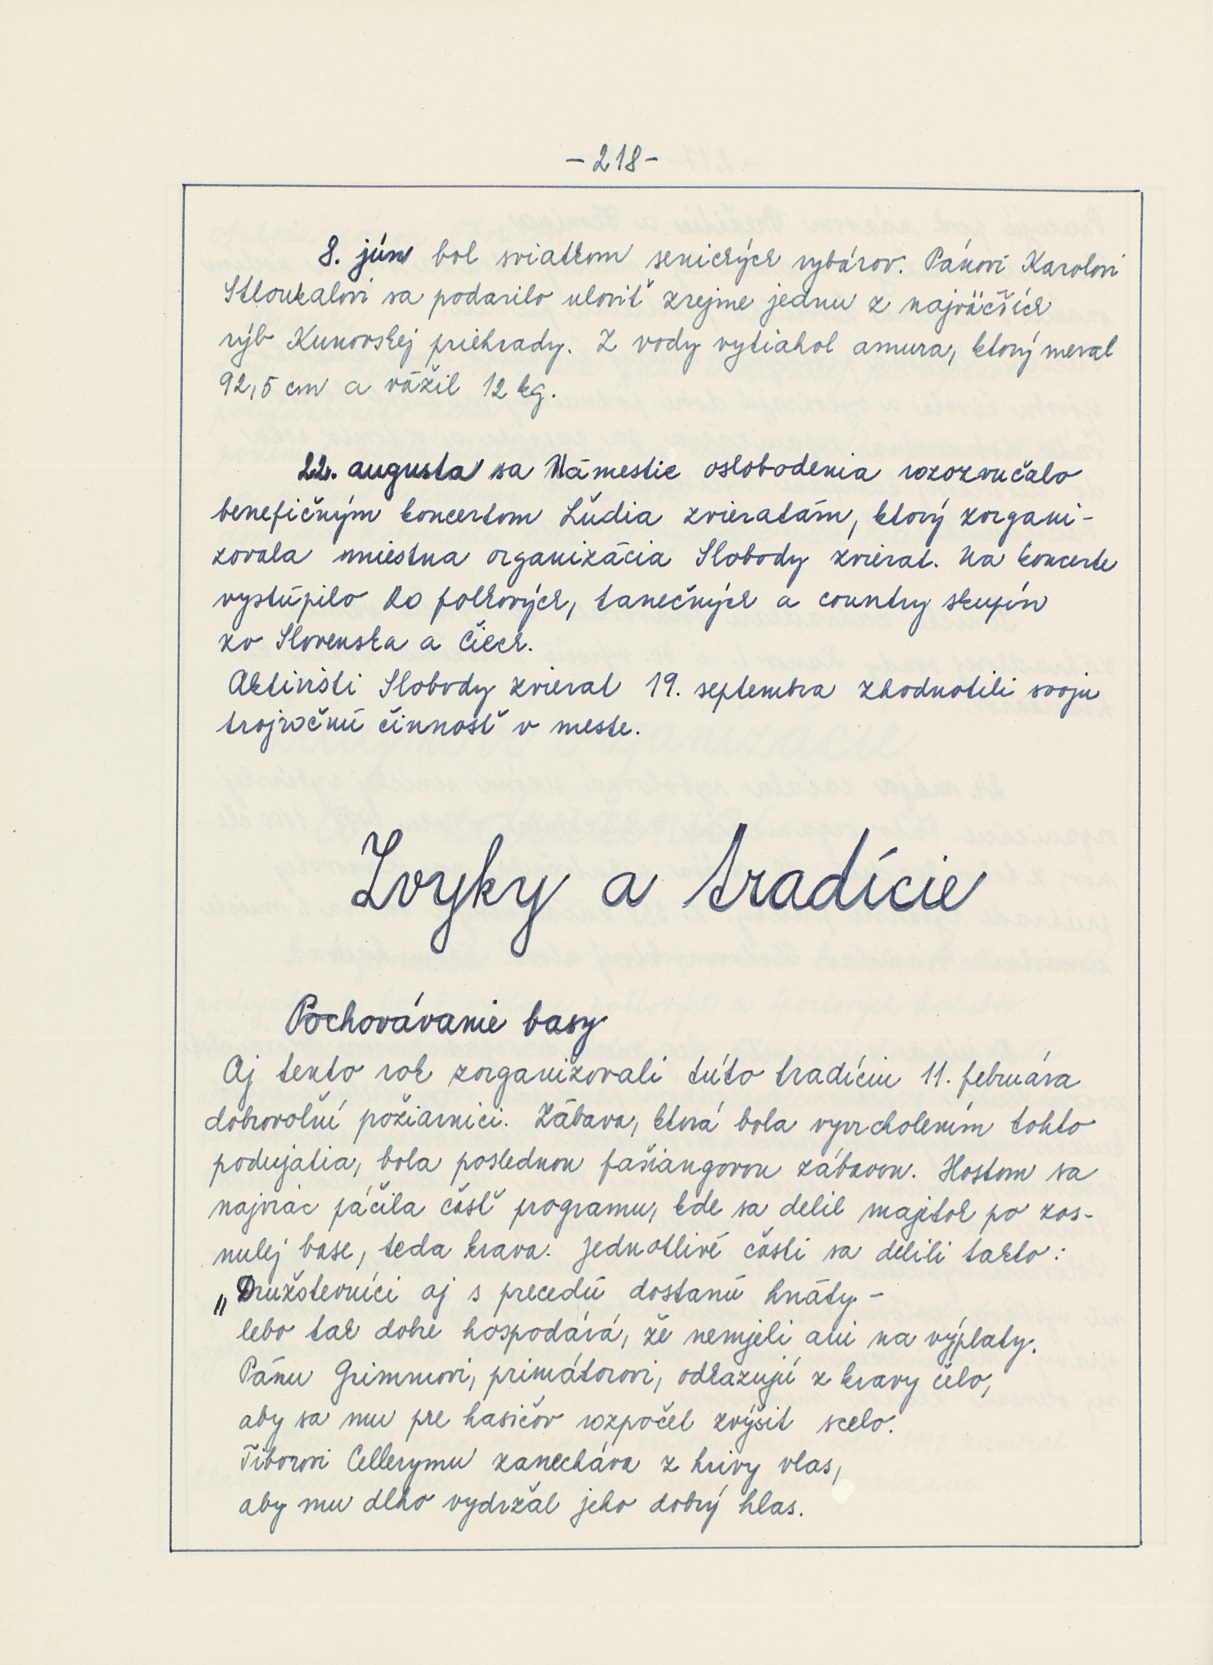 -218-
8. jún bol sviatkom senických rybárov. Pánovi Karolovi
Stloukalovi sa podarilo uloviť zrejme jednu z najväčších
rýb Kunovskej priehrady. Z vody vytiahol amura, ktorý meral
92,5 cm a vážil 12 kg.
22. augusta sa Námestie oslobodenia rozozvučalo
benefičným koncertom Ľudia zvieratám, ktorý zorgani-
zovala miestna organizácia Slobody zvierat. Na koncerte
vystúpilo 10 folkových, tanečných a country skupín
zo Slovenska a Čiech.
Aktivisti Slobody zvierat 19. septembra zhodnotili svoju
trojročnú činnosť v meste.
Zvyky a tradície
Pochovávanie basy
Aj tento rok zorganizovali túto tradíciu 11. februára
dobrovoľní požiarnici. Zábava, ktorá bola vyvrcholením tohto
podujatia, bola poslednou fašiangovou zábavou. Hosťom sa
najviac páčila časť programu, kde sa delil majetok po zos-
nulej base, teda krava. Jednotlivé části sa delili takto:
„Družstevníci aj s precedú dostanú hnáty -
lebo tak dobre hospodárá, že nemjeli ani na výplaty.
Pánu Grimmovi, primátorovi, odkazujú z kravy čelo,
aby sa mu pre hasičov rozpočet zvýšit scelo.
Tiborovi Cellerymu zanecháva z hrivy vlas,
aby mu dlho vydržal jeho dobrý hlas.